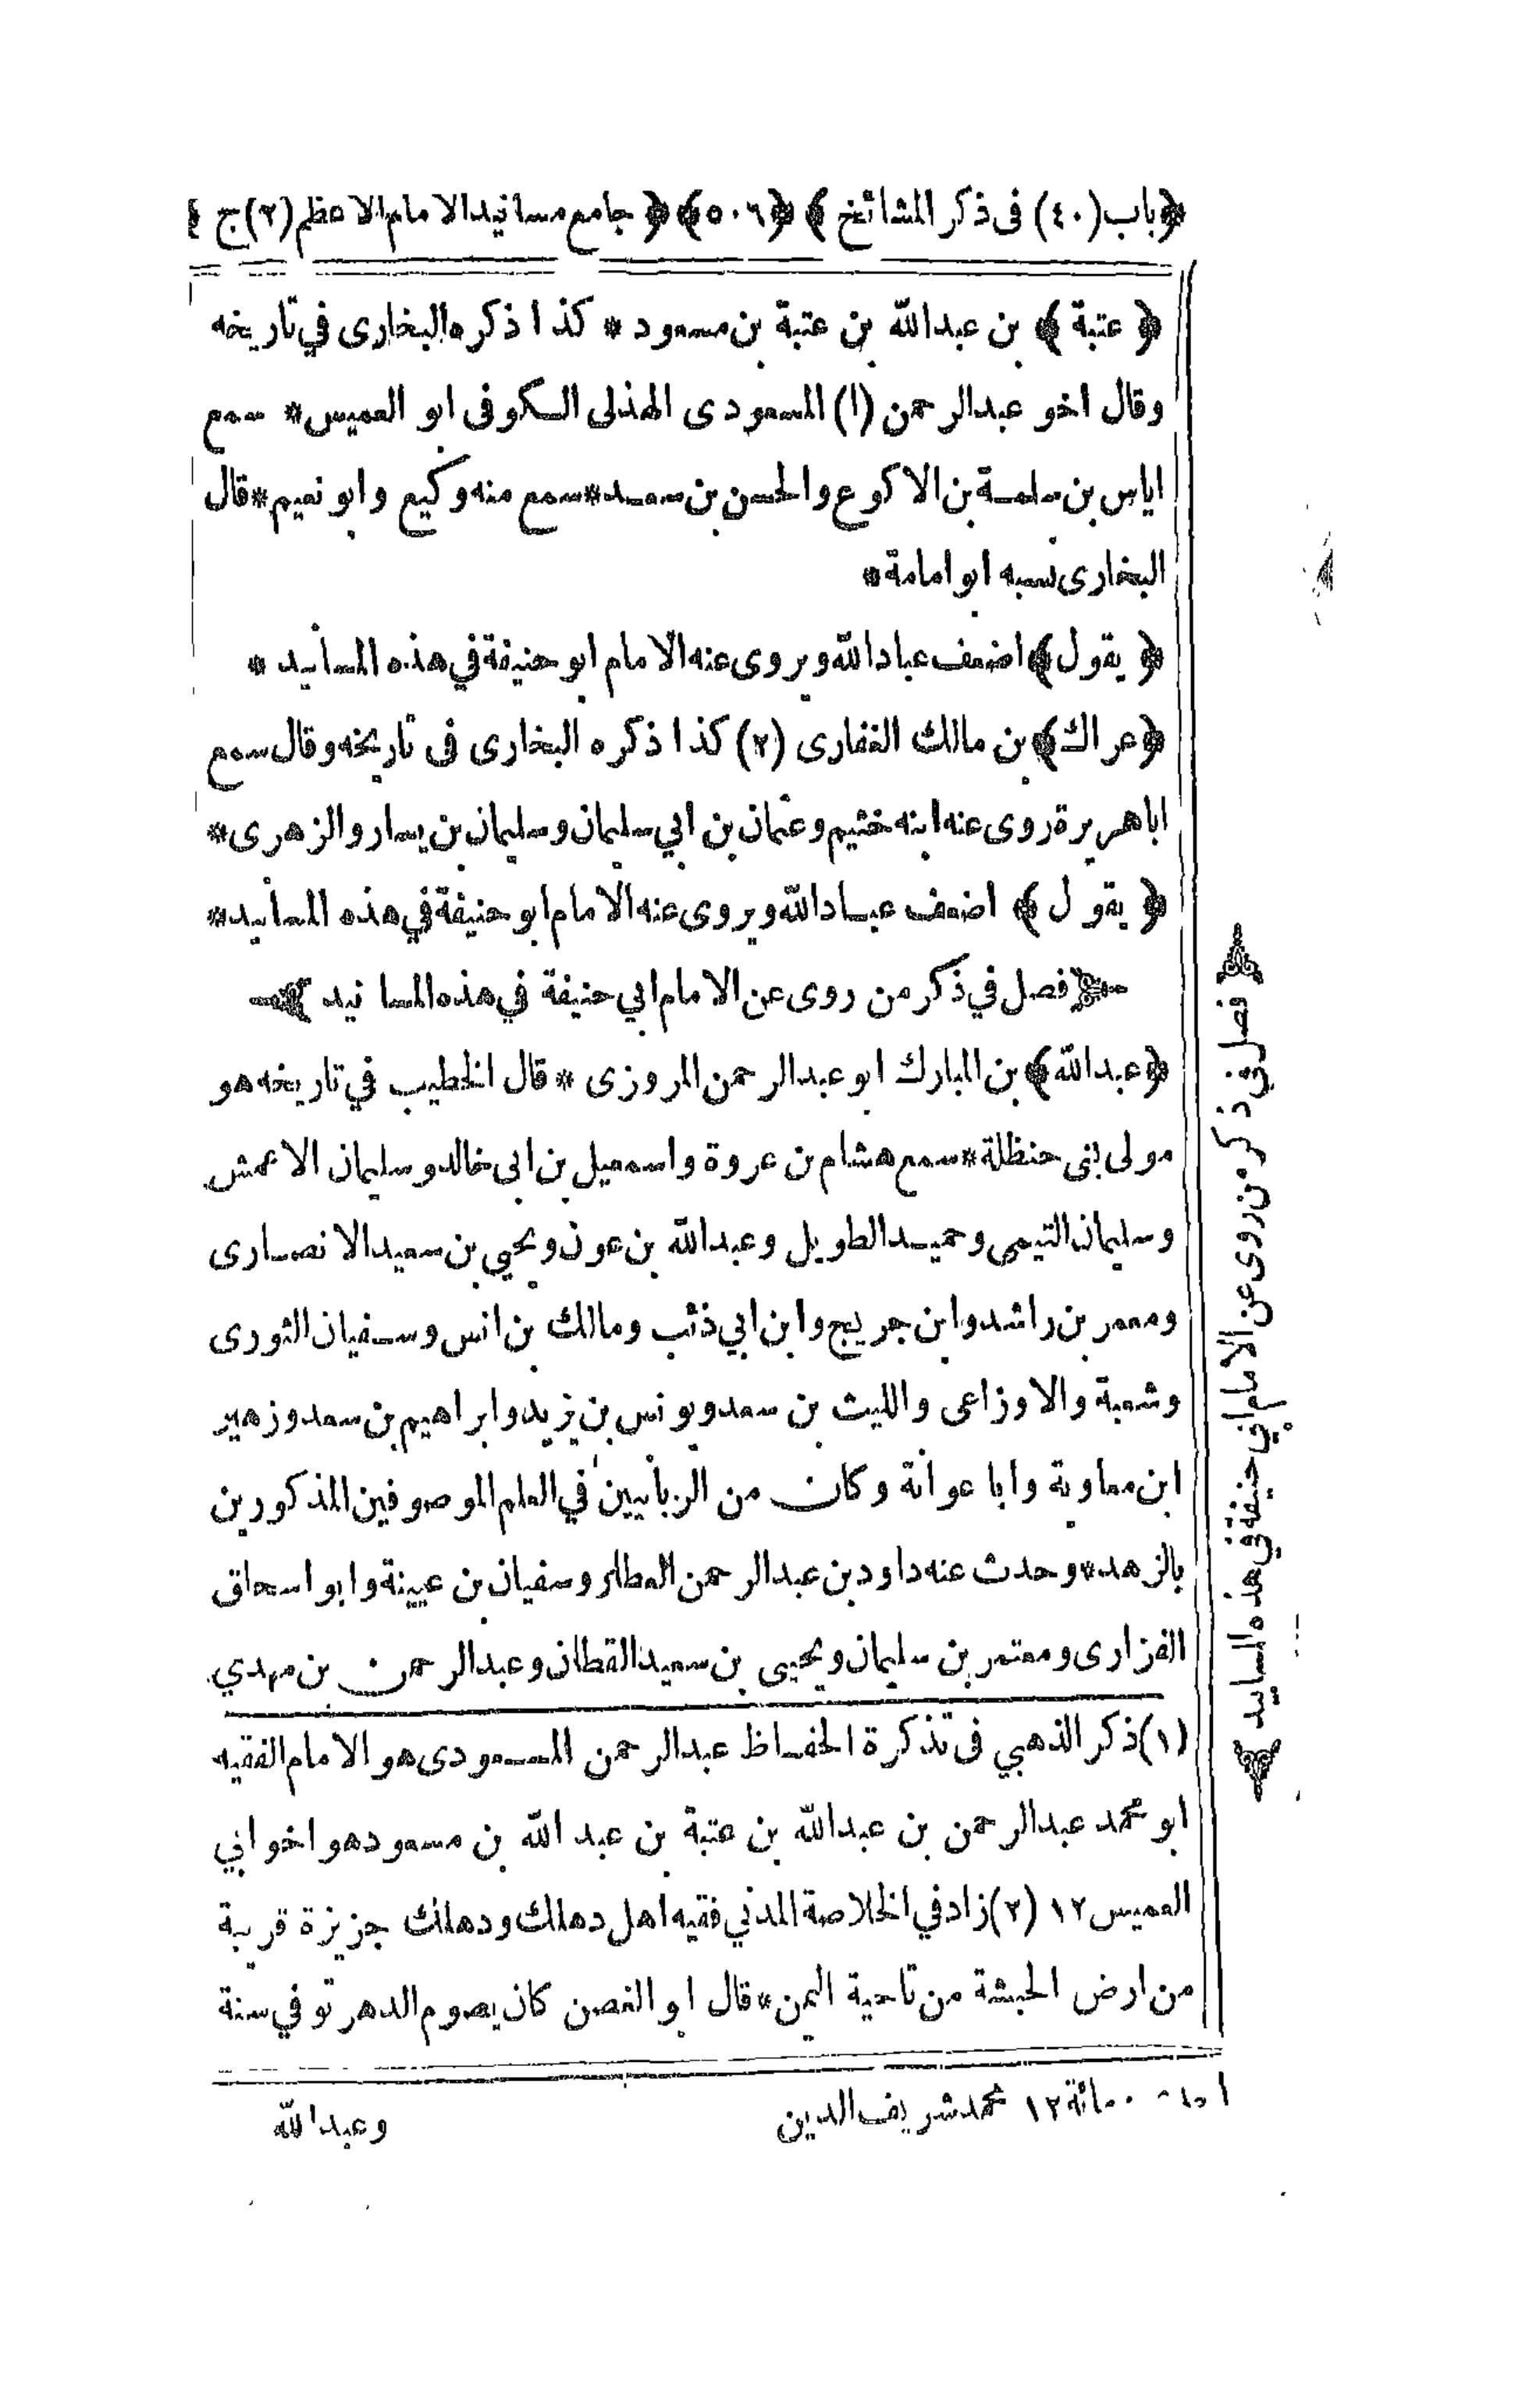 ﴿باب(٤٠) فى ذكر المشائخ﴾ ﴿٥٠٦﴾ ﴿جامع مسانيد الامام الاعظم(٢)ج﴾
﴿عتبة﴾ بن عبدالله بن عتبة بن مسعود * كذا ذكره البخارى في تاريخه
وقال اخو عبدالرحمن (١) المسعودى الهذلى الكوفى ابو العميس* سمع
اياس بن سلمة بن الاكوع والحسن بن سعد*سمع منه وكيع وابو نعيم*قال
البخارى نسبه ابو امامة*
﴿يقول﴾ اضعف عباد الله ويروى عنه الامام ابو حنيفة في هذه المسانيد *
﴿عراك﴾ بن مالك الغفارى (٢) كذا ذكره البخارى فى تاريخه وقال سمع
اباهريرة روى عنه ابنه خثيم وعثمان بن ابي سليمان وسليمان بن يسار والزهرى*
﴿يقول﴾ اضعف عباد الله ويروى عنه الامام ابو حنيفة في هذه المسانيد*
﴿فصل في ذكر من روى عن الامام ابي حنيفة في هذه المسانيد﴾
﴿عبدالله﴾ بن المبارك ابو عبدالرحمن المروزى * قال الخطيب في تاريخه هو
مولى بنى حنظلة*سمع هشام بن عروة واسمعيل بن ابى خالد وسليمان الاعمش
وسليمان التيمى وحميد الطويل وعبدالله بن عون ويحيي بن سعيد الانصارى
ومعمر بن راشد وابن جريج وابن ابي ذئب ومالك بن انس وسفيان الثورى
وشعبة والاوزاعى والليث بن سعد ويونس بن يزيد وابراهيم بن سعد وزهير
ابن معاوية وابا عوانة وكان من الربانيين في العلم الموصوفين المذكورين
بالزهد*وحدث عنه داود بن عبدالرحمن العطار وسفيان بن عيينة وابو اسحاق
الفزارى ومعتمر بن سليمان ويحيى بن سعيد القطان وعبدالرحمن بن مهدي
(١)ذكر الذهبي فى تذكرة الحفاظ عبدالرحمن المسعودى هو الامام الفقيه
ابو محمد عبدالرحمن بن عبدالله بن عتبة بن عبد الله بن مسعود هو اخو ابي
العميس ١٢ (٢)زاد في الخلاصة المدني فقيه اهل دهلك ودهلك جزيرة قريبة
من ارض الحبشة من ناحية اليمن*قال ابو الغصن كان يصوم الدهر توفي سنة
مائة ١٢ محمد شريف الدين
وعبدالله
﴿فصل في ذكر من روى عن الامام ابي حنيفة في هذه المسانيد﴾